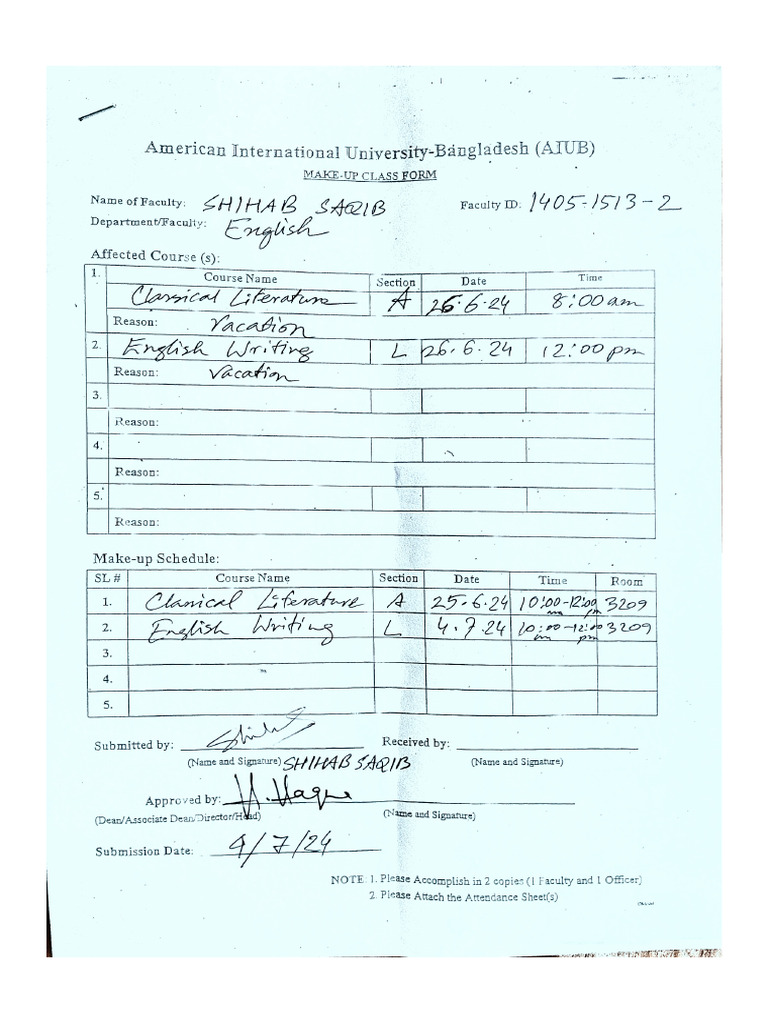 American International University-Bangladesh (AIUB)
MAKE-UP CLASS FORM
Name of Faculty: SHIHAB SAQIB Faculty ID: 1405-1513-2
Department/Faculty: English
Affected Course (s):
1. Course Name Section Date Time
Classical Literature A 26.6.24 8:00am
Reason: Vacation
2. English Writing L 26.6.24 12:00 pm
Reason: Vacation
3.
Reason:
4.
Reason:
5.
Reason:
Make-up Schedule:
SL # Course Name Section Date Time Room
1. Classical Literature A 25.6.24 10:00am-12:00pm 3209
2. English Writing L 4.7.24 10:00am-12:00pm 3209
3.
4.
5.
Submitted by: Received by:
(Name and Signature) SHIHAB SAQIB (Name and Signature)
Approved by: H. Haque
(Dean/Associate Dean/Director/Head) (Name and Signature)
Submission Date: 4/7/24
NOTE: 1. Please Accomplish in 2 copies (1 Faculty and 1 Officer)
2. Please Attach the Attendance Sheet(s)